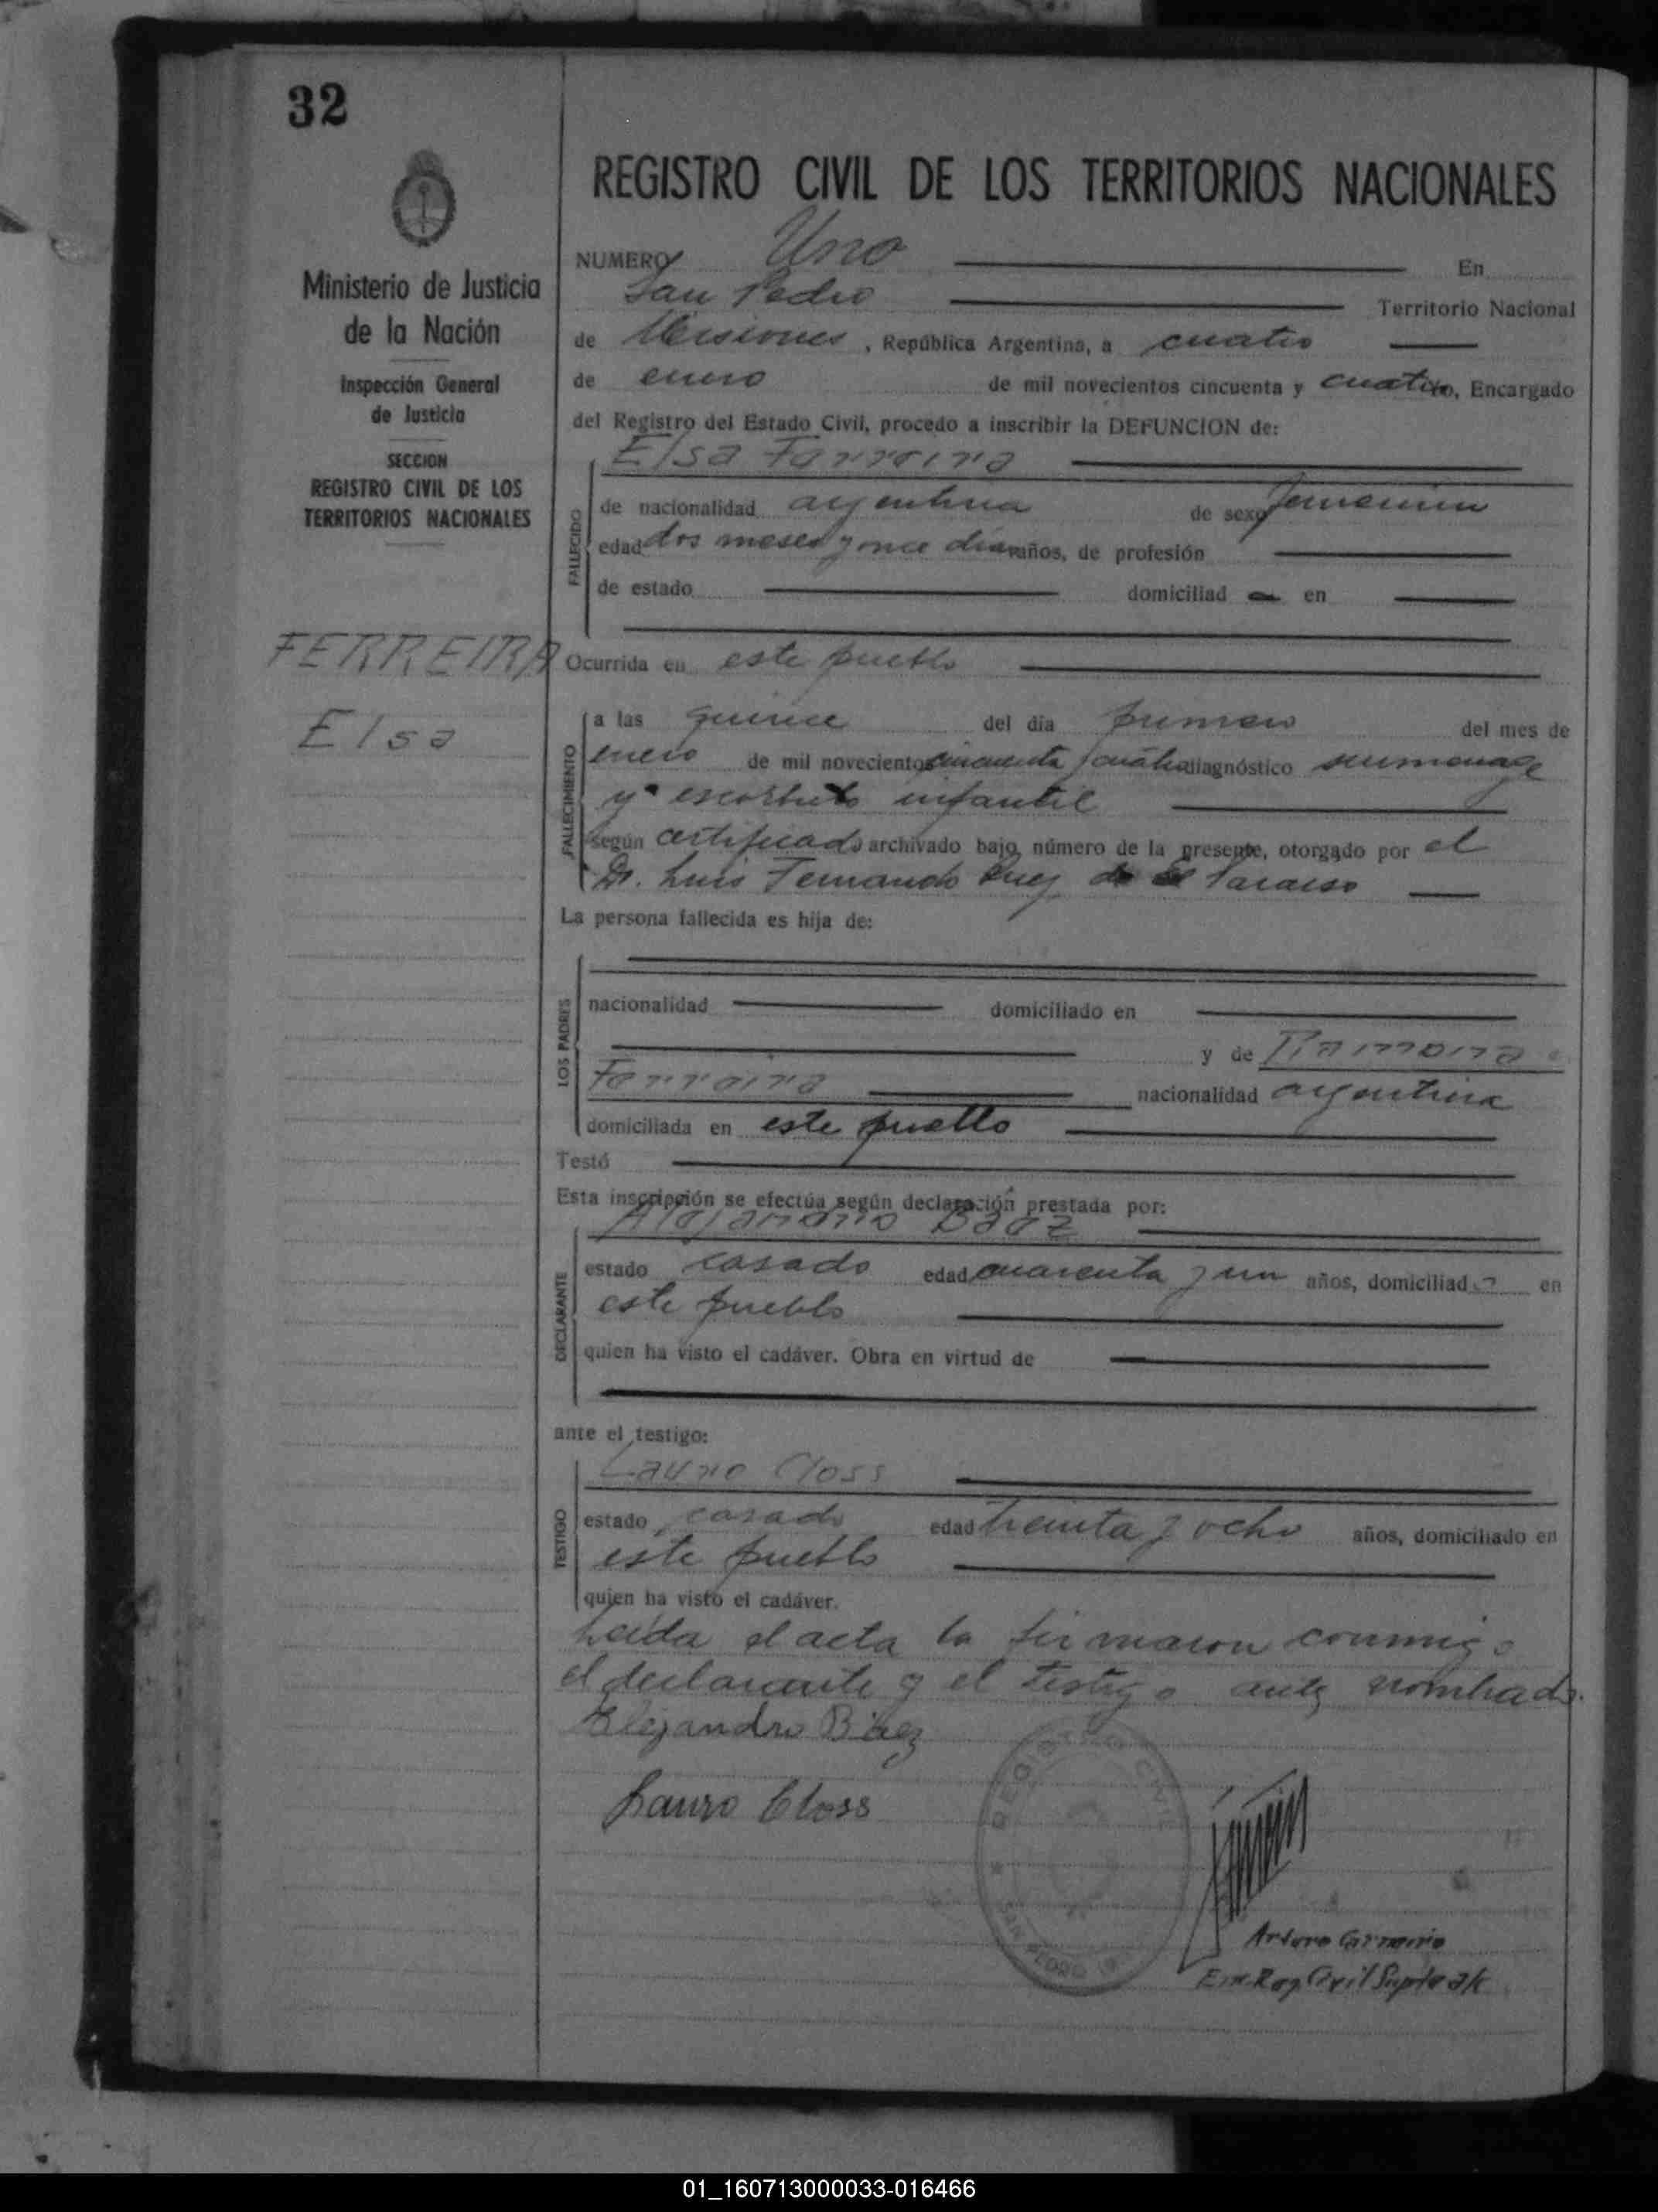 32
REGISTRO CIVIL DE LOS TERRITORIOS NACIONALES
Ministerio de Justicia
de la Nación
Inspección General
de Justicia
SECCION
REGISTRO CIVIL DE LOS
TERRITORIOS NACIONALES
FERREIRA
Elsa
NUMERO Uno En
San Pedro Territorio Nacional
de Misiones, República Argentina, a cuatro
de enero de mil novecientos cincuenta y cuatro, Encargado
del Registro del Estado Civil, procedo a inscribir la DEFUNCION de:
Elsa Ferreira
FALLECIDO
de nacionalidad argentina de sexo femenino
edad dos meses y once dias años, de profesión
de estado domiciliad en
Ocurrida en este pueblo
FALLECIMIENTO
a las quince del día primero del mes de
enero de mil novecientos cincuenta y cuatro diagnóstico
y escorbuto infantil
según certificado archivado bajo número de la presente, otorgado por el
Dr. Luis Fernando de El Paraiso
La persona fallecida es hija de:
LOS PADRES
nacionalidad domiciliado en
y de Ramona
Ferreira nacionalidad argentina
domiciliada en este pueblo
Testó
Esta inscripción se efectúa según declaración prestada por:
Alejandro Baez
DECLARANTE
estado casado edad cuarenta y un años, domiciliado en
este pueblo
quien ha visto el cadáver. Obra en virtud de
ante el testigo:
Lauro Closs
TESTIGO
estado casado edad treinta y ocho años, domiciliado en
este pueblo
quien ha visto el cadáver.
Leida el acta la firmaron conmigo
el declarante y el testigo antes nombrado.
Alejandro Báez
Lauro Closs
REGISTRO CIVIL
SAN PEDRO
Arturo Carneiro
Enc. Reg Civil Supte a/c
01_160713000033-016466